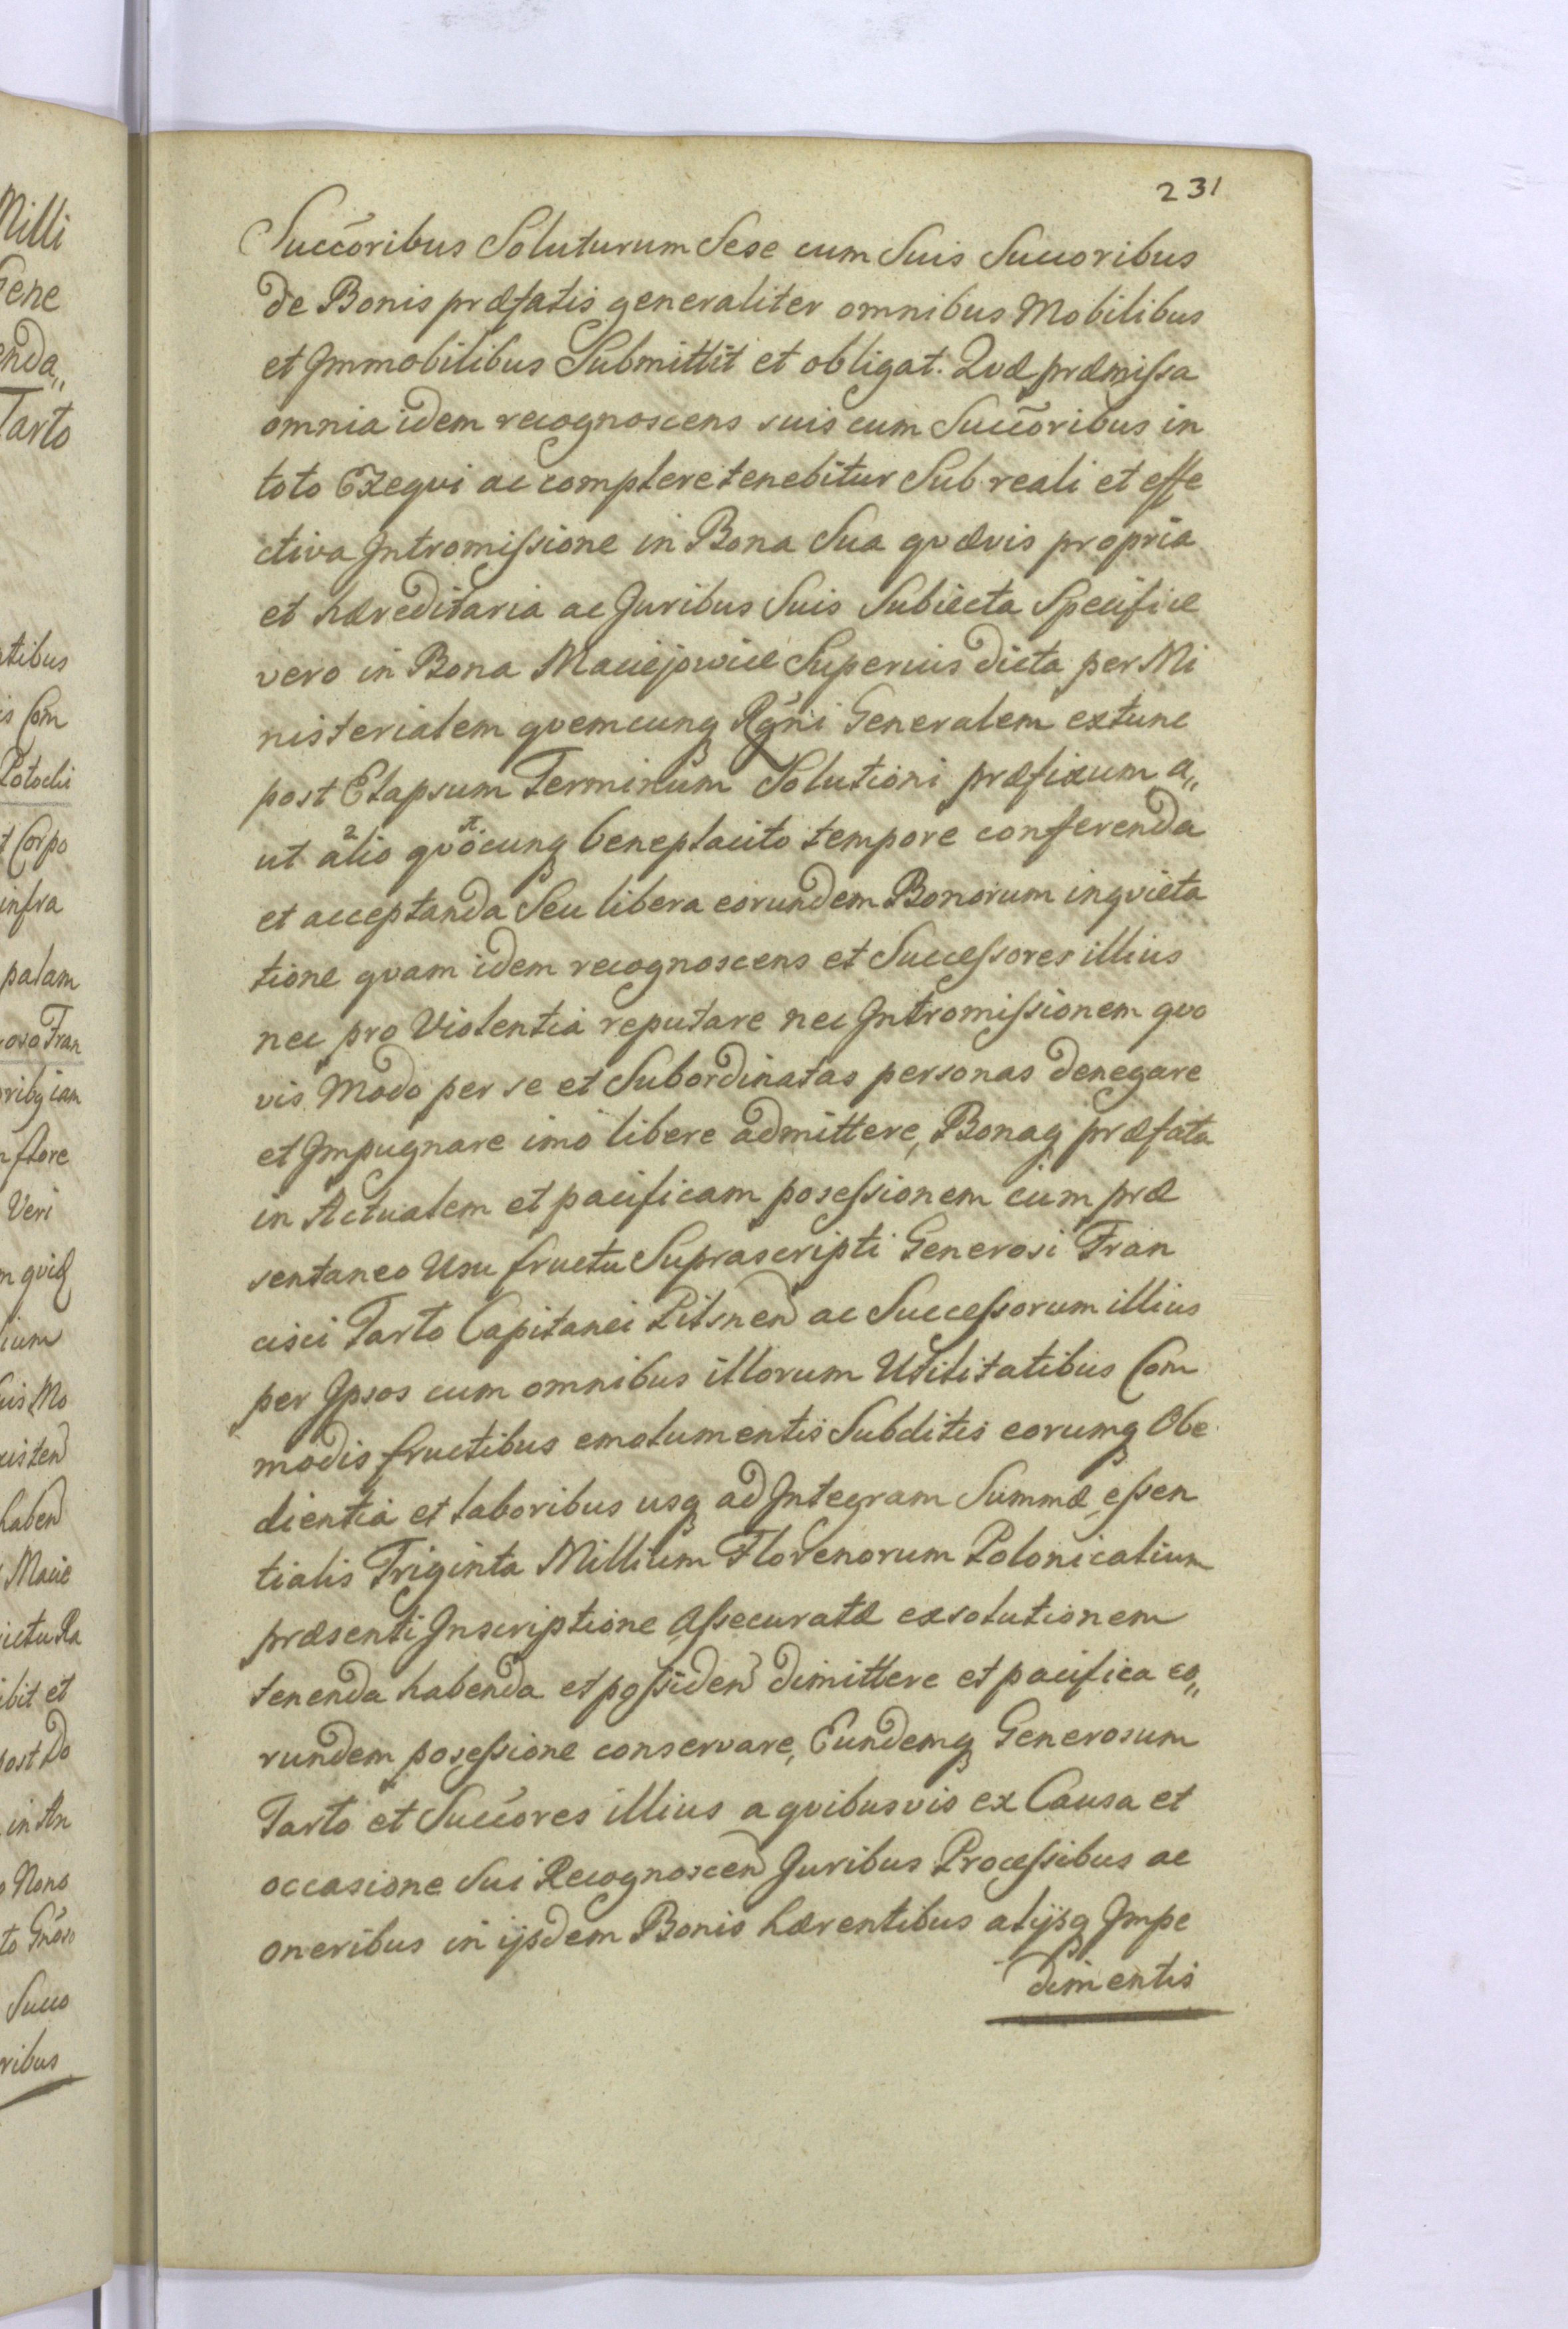 231
Succõribus Soluturum Sese cum Suis Succoribus
de Bonis præfatis generaliter omnibus Mobilibus
et Immobilibus Submittit et obligat. Quæ præmissa
omnia idem recognoscens suis cum Succõribus in
toto Exequi ac complere tenebitur Sub reali et effe
ctiva Intromissione in Bona Sua quævis propria
et hæreditaria ac Juribus Suis Subiecta Specifice
vero in Bona Maciejowice Superius dicta per Mi
nisterialem quemcunq Rgni Generalem extunc
post Elapsum Terminum Solutioni præfixum a„
ut alio quocunq beneplacito tempore conferenda
et acceptanda Seu libera eorundem Bonorum inquieta
tione quam idem recognoscens et Successores illius
nec pro Violentia reputare nec Intromissionem quo
vis Modo per se et Subordinatas personas denegare
et Impugnare imò libere admittere, Bonaq præfata
in Actualem et pacificam posessionem cum præ
sentaneo Usu fructu Suprascripti Generosi Fran
cisci Tarto Capitanei Pilsnen ac Successorum illius
per Ipsos cum omnibus illorum Utilitatibus Com
modis fructibus emolumentis Subditis eorumq Obe
dientia et laboribus usq ad Integram Summæ essen
tialis Triginta Millium Florenorum Polonicalium
præsenti Inscriptione Assecuratæ exsolutionem
tenenda habenda et possiden dimittere et pacifica eo„
rundem posessione conservare, Eundemq Generosum
Tarto et Succores illius a quibusvis ex Causa et
occasione Sui Recognoscen Juribus Processibus ac
oneribus in ijsdem Bonis hærentibus alijsq Impe
dimentis
Milli
Gene
enda„
Tarto
atibus
is Com
Potocki
t Corpo
infra
palam
oso Fran
oribq iam
Veri
m quid
ium
uis Mo
xisten
haben
Macie
ibit et
post Do
in An
Nono
to Gnoso
Succo
ribus